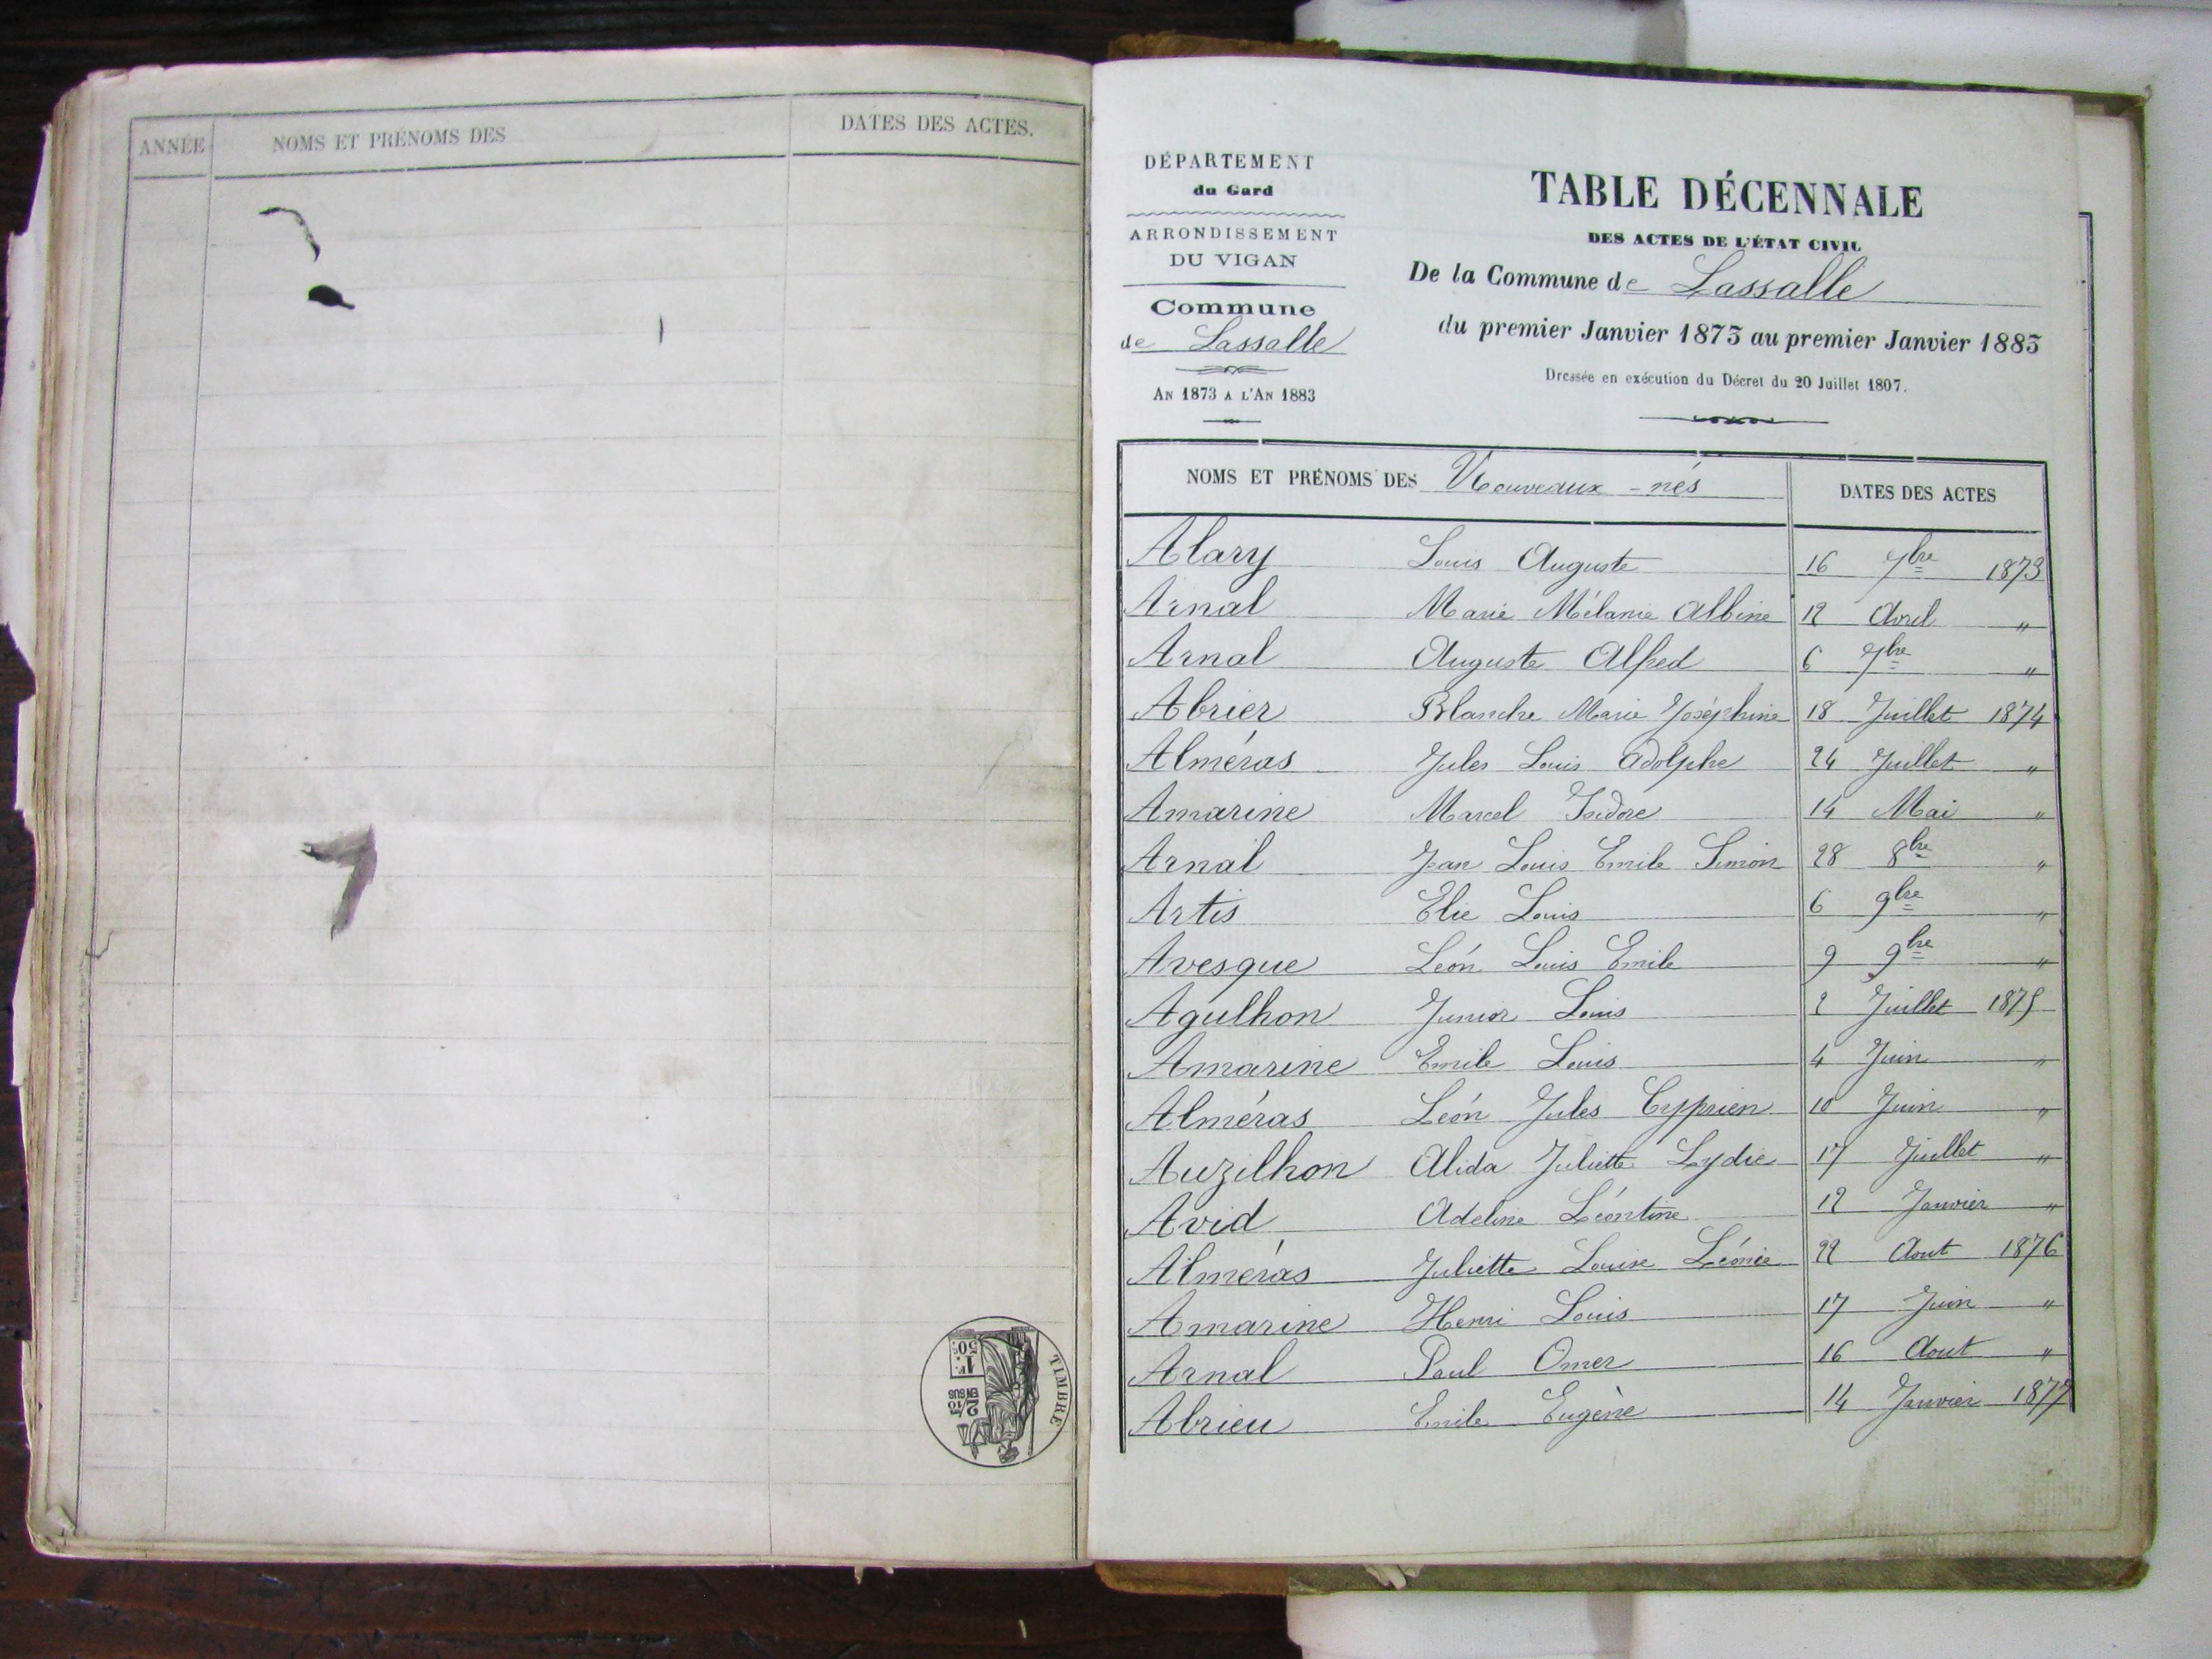 ANNÉE NOMS ET PRÉNOMS DES DATES DES ACTES.
TIMBRE
1F. 50c.
2/10 EN SUS
DÉPARTEMENT
du Gard
ARRONDISSEMENT
DU VIGAN
Commune
de Lassalle
AN 1873 A L'AN 1883
TABLE DÉCENNALE
DES ACTES DE L'ÉTAT CIVIL
De la Commune de Lassalle
du premier Janvier 1873 au premier Janvier 1883
Dressée en exécution du Décret du 20 Juillet 1807.
NOMS ET PRÉNOMS DES Nouveaux-nés DATES DES ACTES
Alary Louis Auguste 16 7bre 1873
Arnal Marie Mélanie Albine 12 Avril "
Arnal Auguste Alfred 6 7bre "
Abrier Blanche Marie Joséphine 18 Juillet 1874
Alméras Jules Louis Adolphe 24 Juillet "
Amarine Marcel Isidore 14 Mai "
Arnal Jean Louis Emile Simon 28 8bre "
Artis Elie Louis 6 9bre "
Avesque Léon Louis Emile 9 9bre "
Agulhon Junior Louis 2 Juillet 1875
Amarine Emile Louis 4 Juin "
Alméras Léon Jules Cyprien 10 Juin "
Auzilhon Alida Juliette Lydie 17 Juillet "
Avid Adeline Léontine 12 Janvier "
Alméras Juliette Louise Léonie 22 Aout 1876
Amarine Henri Louis 17 Juin "
Arnal Paul Omer 16 Aout "
Abrieu Emile Eugène 14 Janvier 1877